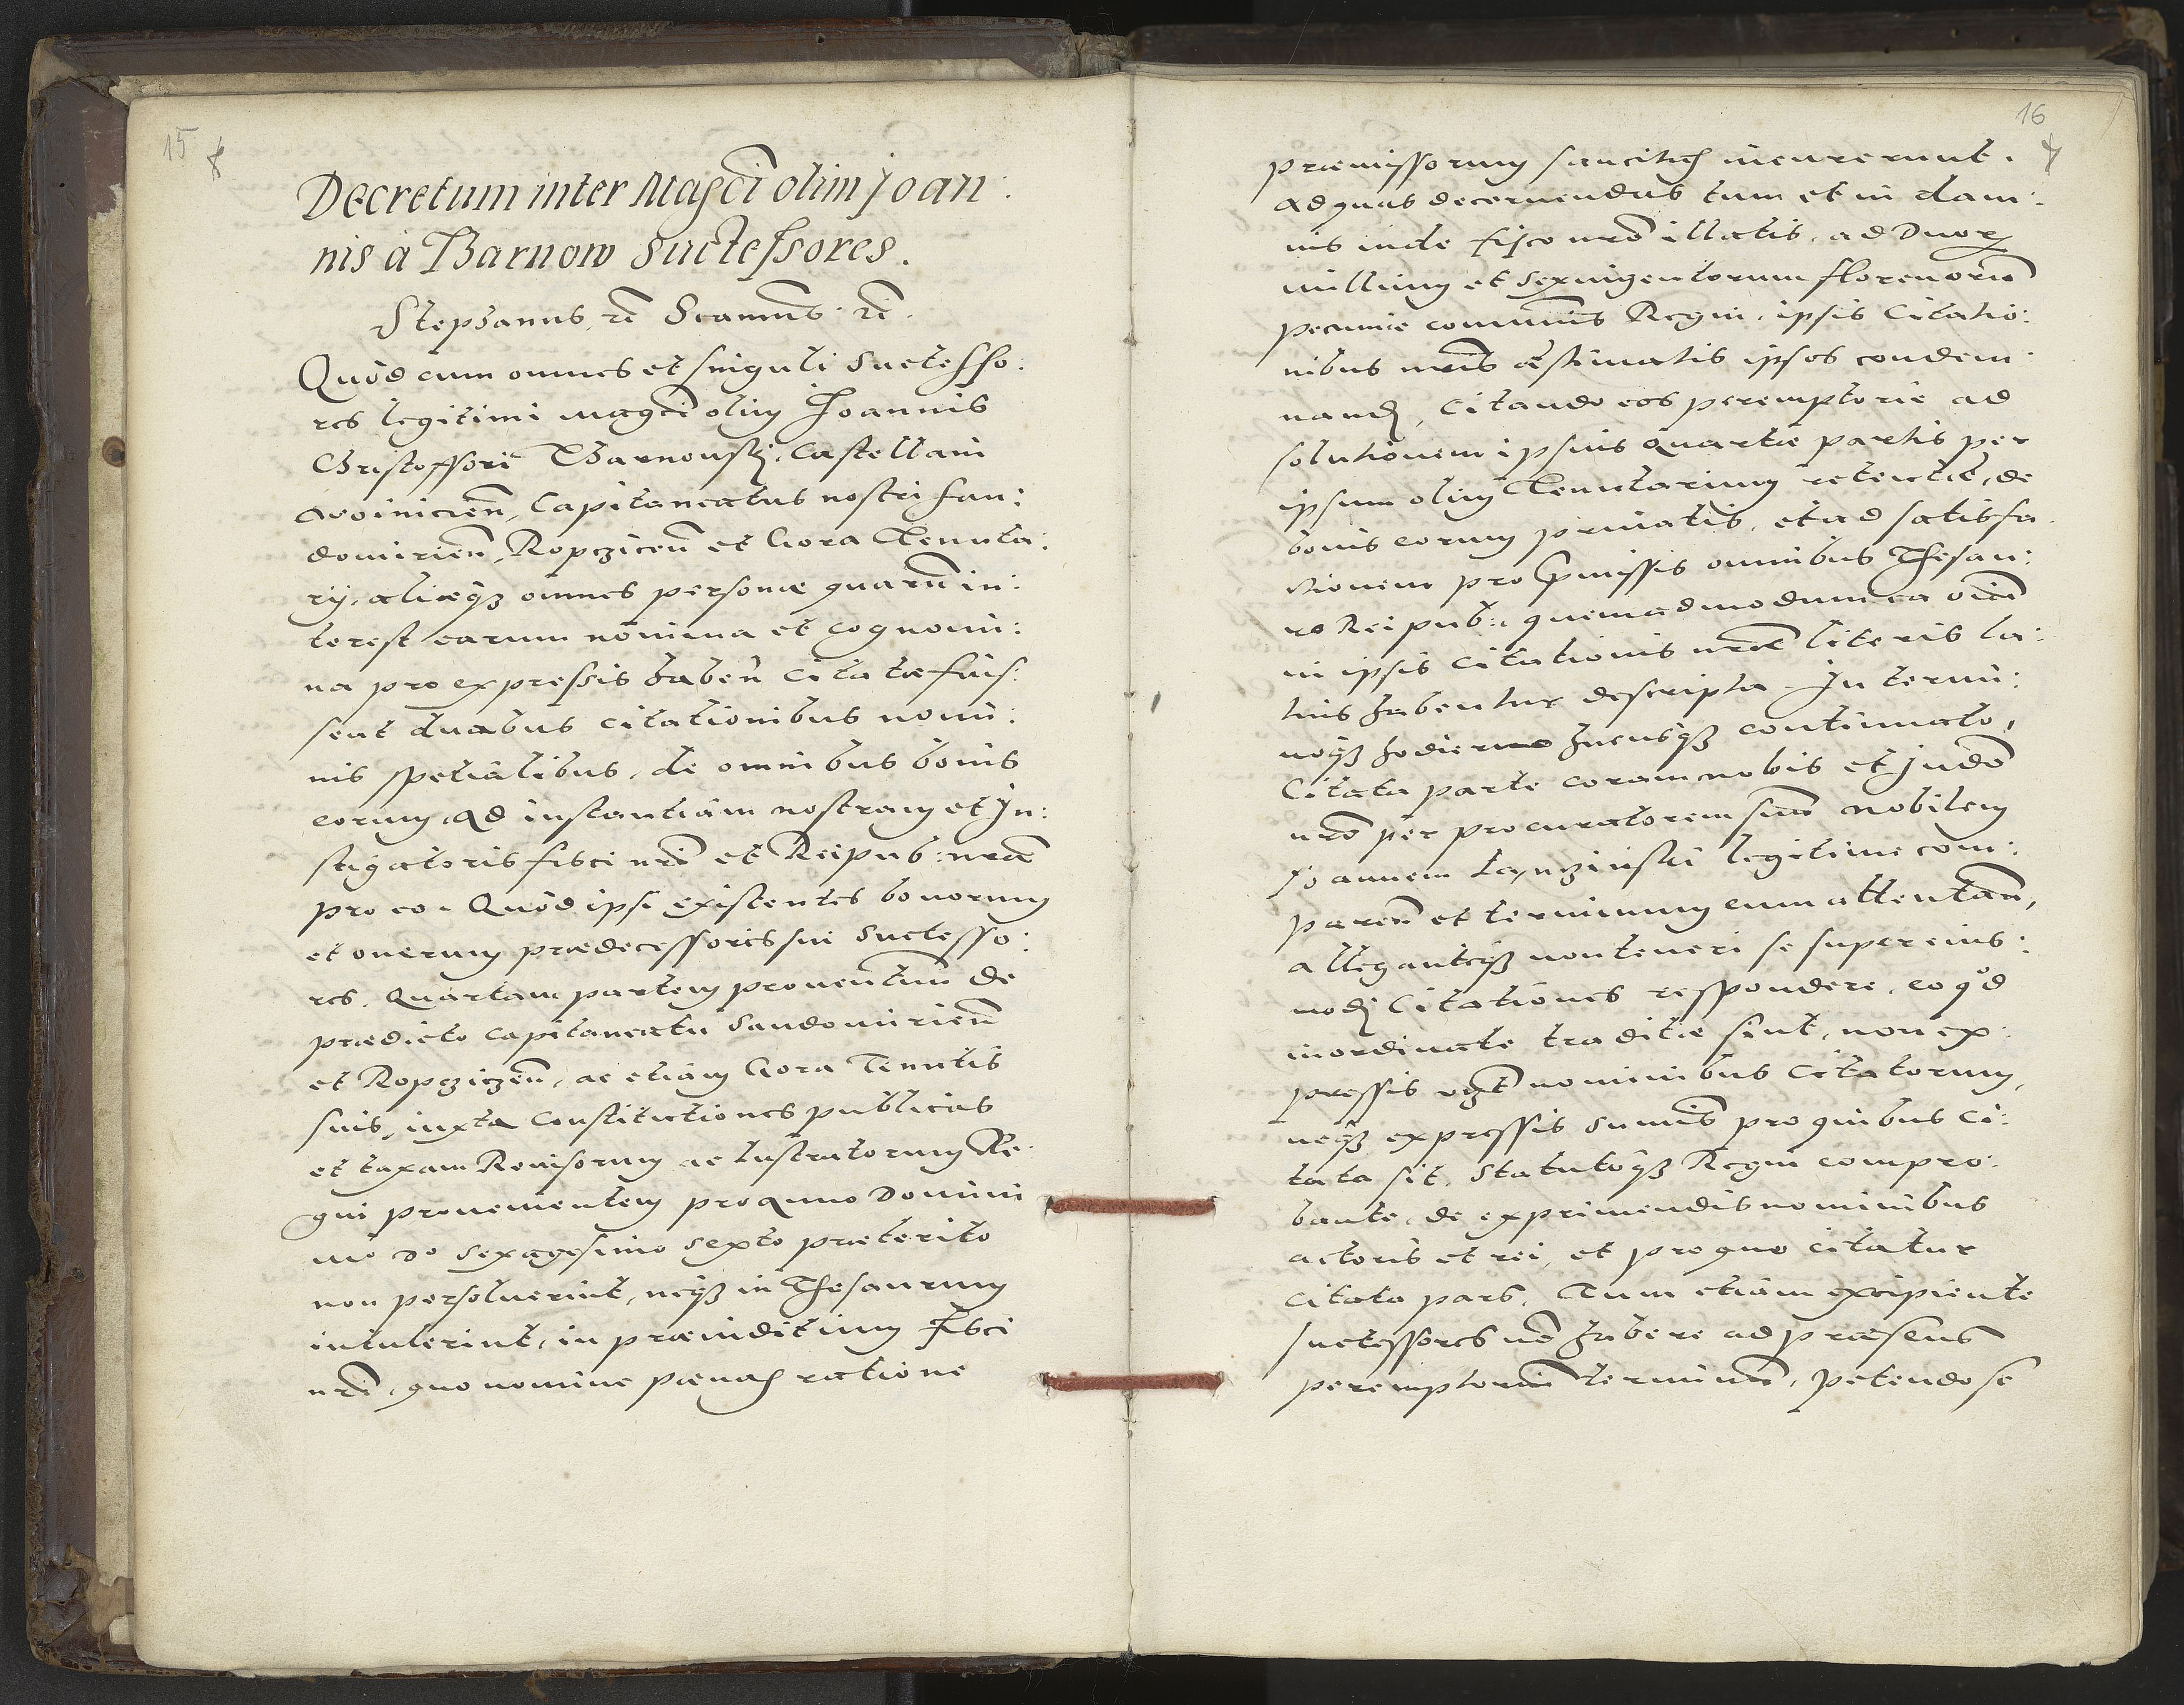 15
Decretum inter Magci olim Joan:
nis à Tharnow Successores.
Stephanus, rē Seamus. rē.
Quòd cum omnes et singuli Successo:
res legitimi magci olim Joannis
Christoffori Tharnouskj, Castellani
Woinicien, Capitaneatus nostri San:
domirien, Ropczicen et Gora Tenuta:
rij, aliaeqȝ omnes personae quarū in:
terest earum nomina et cognomi:
na pro expressis haben citatae fuis:
sent duabus citationibus nomi:
nis spetialibus, de omnibus bonis
eorum, ad instantiam nostram et In:
stigatoris fisci nrī et Reipub: nrae
pro eo. Quòd ipsi existentes bonorum
et onerum praedecessoris sui Successo:
res. Quartam partem prouentuū de
praedicto Capitaneatu Sandomirien
et Ropczizen, ac etiam Gora Tenutis
suis, iuxta Constitutiones publicas
et taxam Reuisorum ac Lustratorum Re:
gni prouenientem pro anno Domini
mo do sexagesimo sexto praeterito
non persoluerint, neqȝ in Thesaurum
intulerint, in praeiuditium fisci
nrī, quo nomine paenas ratione
16
praemissorum sancitas incurrerunt.
Ad quas decernendas tum et in dam:
nis inde fisco nrō illatis, ad Duorꝝ
millium et sexingentorum florenorū
pecuniae communis Regni, ipsis Citatio:
nibus nrīs aestimatis ipsos condem:
nandj, Citando eos peremptorie ad
solutionem ipsius quartae partis per
ipsum olim Tenutarium retentae, de
bonis eorum priuatis, et ad satisfa
ctionem pro pmissis omnibus Thesau:
ro Reipub: quemadmodum ea oīa
in ipsis Citationis nrae literis la:
tius habentur descripta. In termi:
noqȝ hodierno hucusqȝ continuato,
Citata parte coram nobis et Judō
nrō per procuratorem suū nobilem
Joannem legitime com:
paren et terminum cum attentan,
allegantejqȝ non teneri se super eius:
modj Citationes respondere, eo qd
inordinate traditae sint, non ex:
pressis vzt nominibus Citatorum,
neqȝ expressis sumis pro quibus Ci:
tata sit. Statutoqȝ Regni compro:
bante, de exprimendis nominibus
actoris et rei, et pro quo citatur
Citata pars. Tum etiam excipiente
Successores nō habere ad praesens
peremptoriū terminū, petendo se